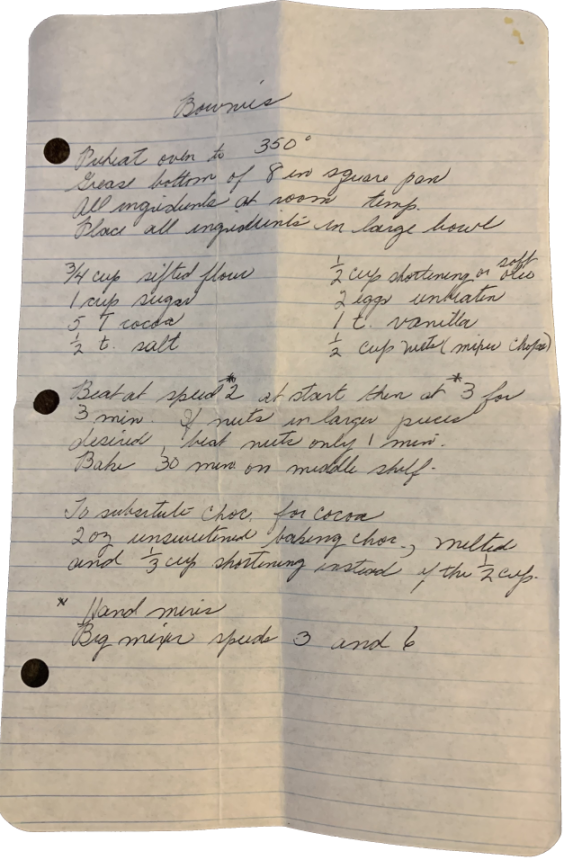 Bownies
Preheat oven to 350°
Grease bottom of 8 in square pan
All ingredients at room temp.
Place all ingredients in large bowl
3/4 cup sifted flour
1 cup sugar
5 T cocoa
1/2 t. salt
1/2 cup shortening or soft oleo
2 eggs unbeaten
1 t. vanilla
1/2 cup nuts (mixer chops)
Beat at speed *2 at start then at *3 for
3 min. If nuts in larger pieces
desired, beat nuts only 1 min.
Bake 30 min on middle shelf.
To substitute choc. for cocoa
2 oz unsweetened baking choc., melted
and 1/3 cup shortening instead of the 1/2 cup.
* Hand mixer
Big mixer speeds 3 and 6